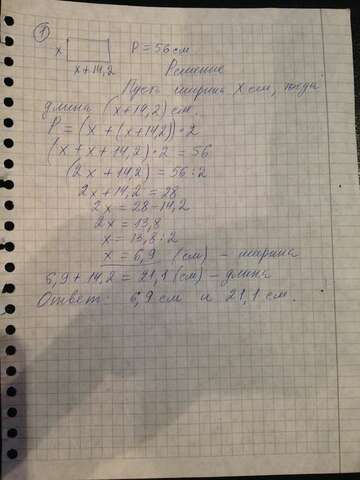 1
x P = 56 см
x + 14,2
Решение
Пусть ширина x см, тогда
длина (x+14,2) см.
P = (x + (x+14,2)) · 2
(x + x + 14,2) · 2 = 56
(2x + 14,2) = 56 : 2
2x + 14,2 = 28
2x = 28 - 14,2
2x = 13,8
x = 13,8 : 2
x = 6,9 (см) - ширина
6,9 + 14,2 = 21,1 (см) - длина
Ответ: 6,9 см и 21,1 см.